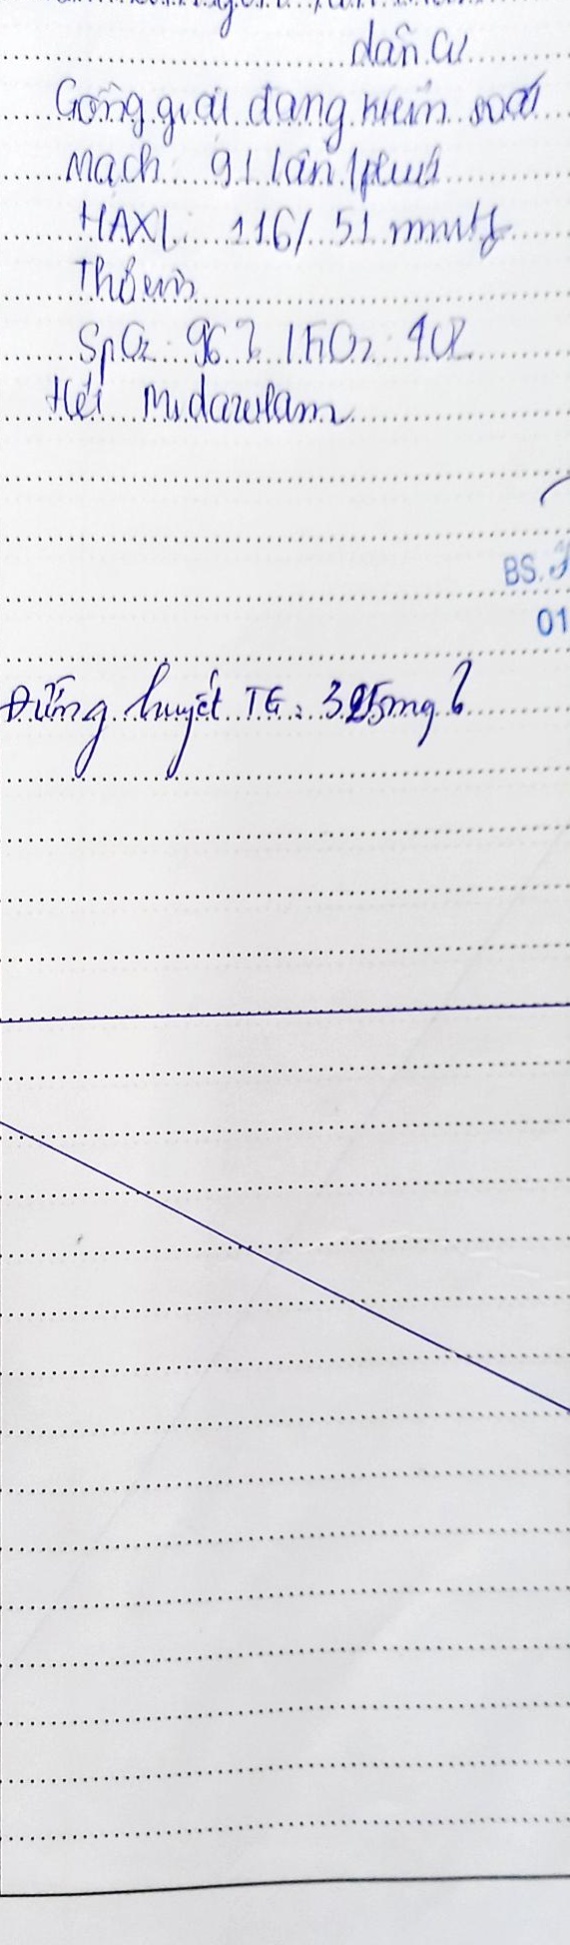 dẫn lưu
Gồng giật đang kiểm soát
Mạch: 91 lần/phút
HAXL: 116/51 mmHg
Thở êm
SpO2: 96% / FiO2: 40%
Hết Midazolam
BS.
01
Đường huyết TG: 325mg%